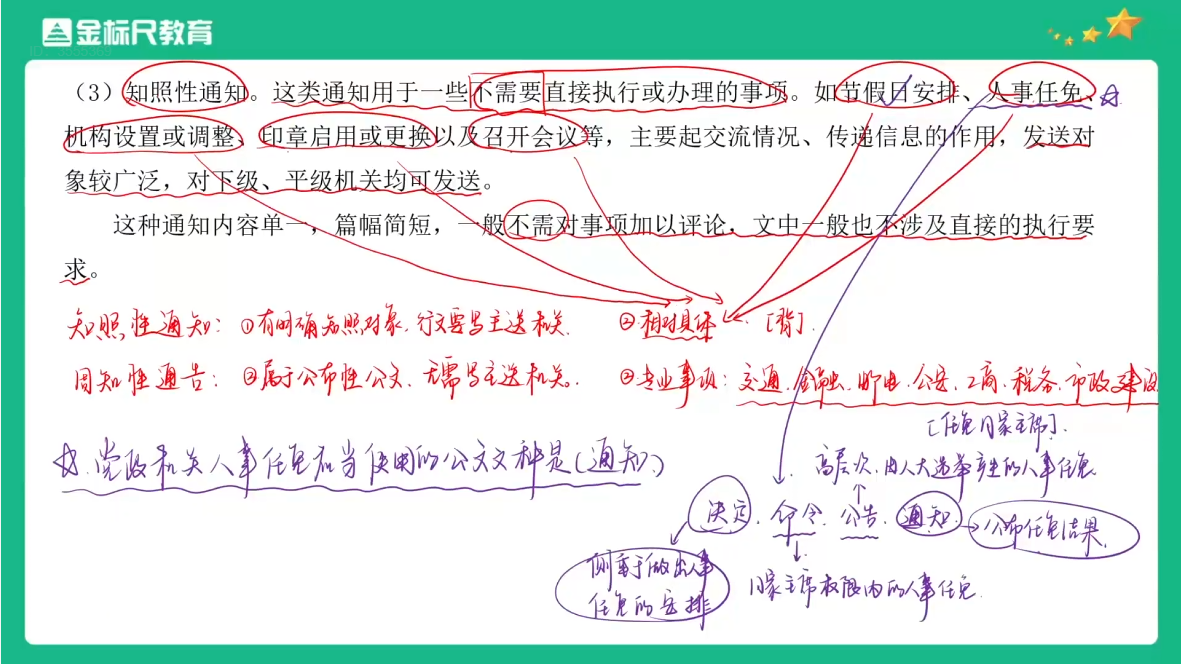 金标尺教育
（3）知照性通知。这类通知用于一些不需要直接执行或办理的事项。如节假日安排、人事任免、
机构设置或调整、印章启用或更换以及召开会议等，主要起交流情况、传递信息的作用，发送对
象较广泛，对下级、平级机关均可发送。
这种通知内容单一，篇幅简短，一般不需对事项加以评论，文中一般也不涉及直接的执行要
求。
知照性通知：①有明确知照对象，行文要写主送机关。 ②相对具体 [背].
周知性通告：②属于公布性公文，无需写主送机关。 ②专业事项：交通、金融、邮电、公安、工商、税务、市政建设
[任免国家主席].
☆.党政机关人事任免应当使用的公文文种是(通知)
高层次.由人大选举产生的人事任免
决定. 命令. 公告. 通知 → 公布任免结果
侧重于做出人事
任免的安排
国家主席权限内的人事任免.